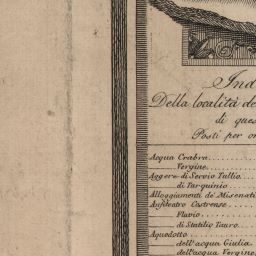 Ind
Della località de
di ques
Posti per or
Acqua Crabra
Vergine
Aggere di Servio Tullio
di Tarquinio
Alloggiamenti de' Misenati
Anfiteatro Castrense
Flavio
di Statilio Tauro
Aquedotto
dell'acqua Giulia
dell'acqua Vergine